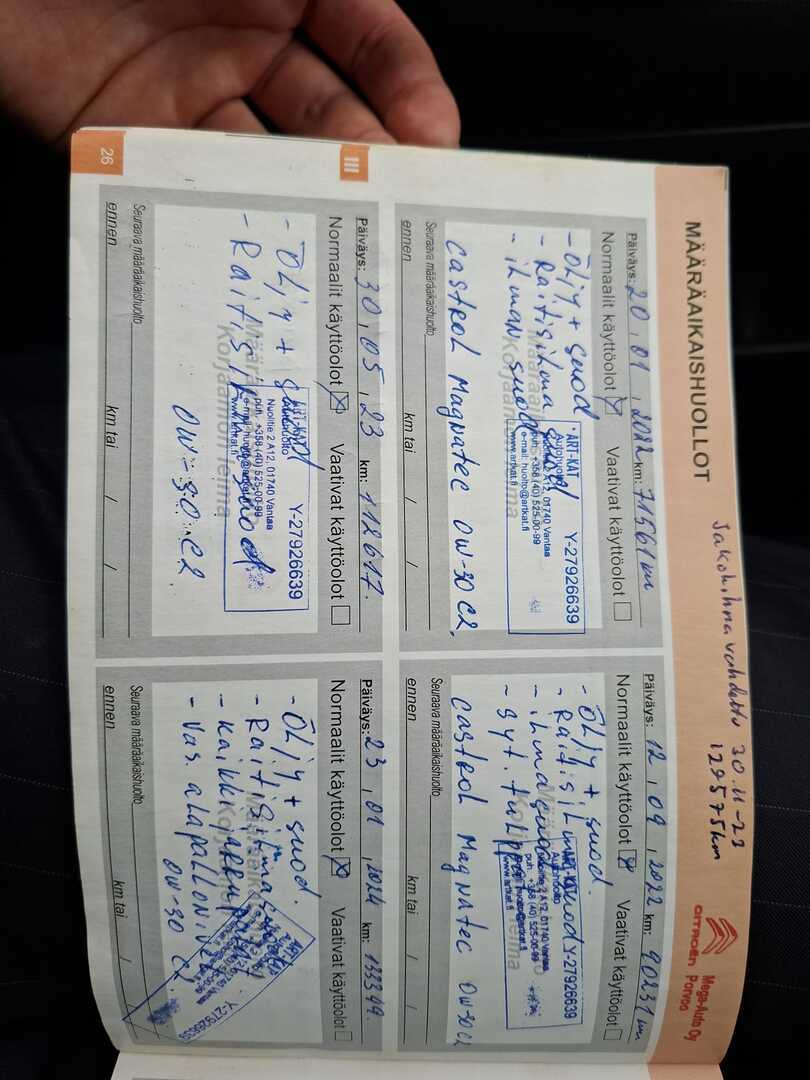 MÄÄRÄAIKAISHUOLLOT
Jakohihna vaihdettu 30.11-23
129575km
CITROËN
Mega-Auto Oy
Porvoo
Päiväys: 20, 01, 2022 km: 71561 km
Normaalit käyttöolot Vaativat käyttöolot
- ÖLJY + suod
- Raitisilma suod
- ilman suod
Korjaamon leima
ART-KAT Y-27926639
Autohuolto
Nuolitie 2 A12, 01740 Vantaa
puh. +358 (40) 525-00-99
e-mail: huolto@artkat.fi
www.artkat.fi
CASTROL Magnatec 0W-30 C2.
Seuraava määräaikaishuolto
ennen km tai / /
Päiväys: 12, 09, 2022 km: 90231 km
Normaalit käyttöolot Vaativat käyttöolot
- ÖLJY + suod.
- Raitisilma suod
- ilma suod
- syt. tulpat
ART-KAT Y-27926639
Autohuolto
Nuolitie 2 A12, 01740 Vantaa
puh. +358 (40) 525-00-99
www.artkat.fi
CASTROL Magnatec 0W-30 C2
Seuraava määräaikaishuolto
ennen km tai / /
III
Päiväys: 30, 05, 23 km: 112617.
Normaalit käyttöolot Vaativat käyttöolot
- ÖLJY + suod
- Raitisilm suod
Korjaamon leima
ART-KAT Y-27926639
Autohuolto
Nuolitie 2 A12, 01740 Vantaa
puh. +358 (40) 525-00-99
e-mail: huolto@artkat.fi
www.artkat.fi
0W-30 C2.
Seuraava määräaikaishuolto
ennen km tai / /
Päiväys: 23, 01, 2024 km: 133349.
Normaalit käyttöolot Vaativat käyttöolot
- ÖLJY + suod.
- Raitisilma suod
- Kaikki jarru
- Vas. alapallonivel
0W-30 C2
Y-27926639
Seuraava määräaikaishuolto
ennen km tai / /
26